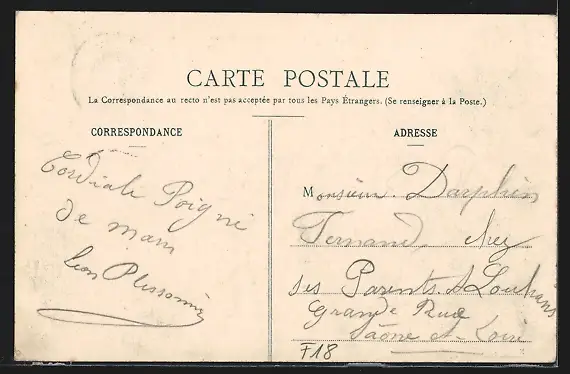 CARTE POSTALE
La Correspondance au recto n'est pas acceptée par tous les Pays Étrangers. (Se renseigner à la Poste.)
CORRESPONDANCE
Cordiale Poigné
de main
Leon
ADRESSE
Monsieur Dauphin
Fernand chez
ses Parents à Louhans
Grande Rue
Saône et Loire
F18